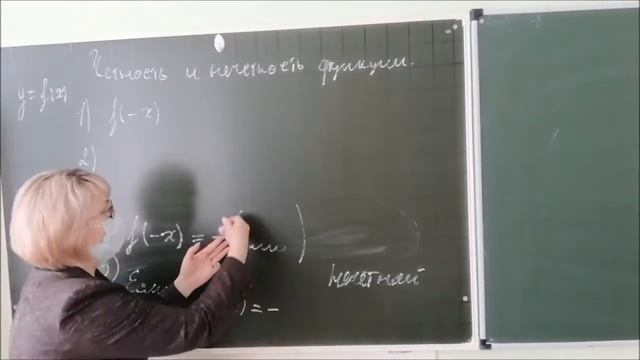 Четность и нечетность функции.
y = f(x)
1) f(-x)
2)
f(-x) = -(
)
Если
нечетный
) = -